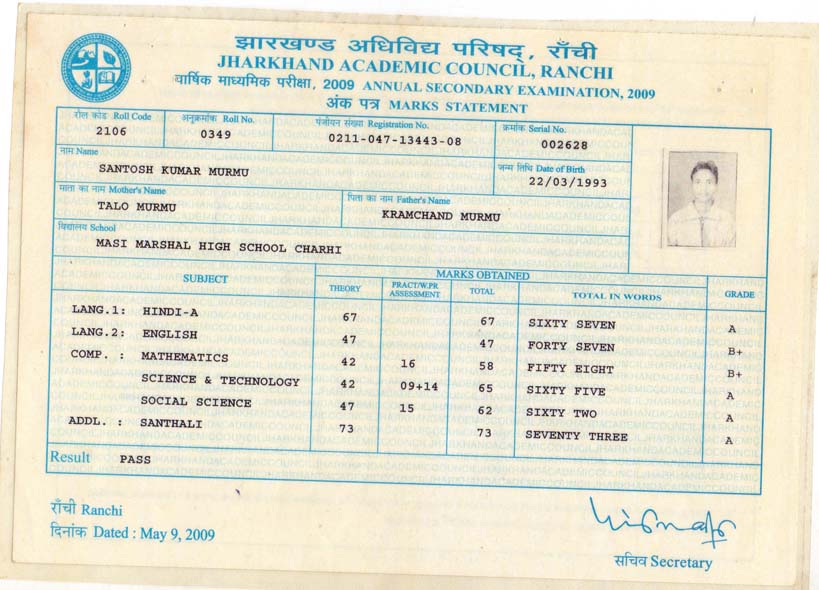 झारखण्ड अधिविद्य परिषद्, राँची
JHARKHAND ACADEMIC COUNCIL, RANCHI
वार्षिक माध्यमिक परीक्षा, 2009 ANNUAL SECONDARY EXAMINATION, 2009
अंक पत्र MARKS STATEMENT
रौल कोड Roll Code अनुक्रमांक Roll No. पंजीयन संख्या Registration No. क्रमांक Serial No.
2106 0349 0211-047-13443-08 002628
नाम Name जन्म तिथि Date of Birth
SANTOSH KUMAR MURMU 22/03/1993
माता का नाम Mother's Name पिता का नाम Father's Name
TALO MURMU KRAMCHAND MURMU
विद्यालय School
MASI MARSHAL HIGH SCHOOL CHARHI
SUBJECT MARKS OBTAINED GRADE
THEORY PRACT/W.PR ASSESSMENT TOTAL TOTAL IN WORDS
LANG.1: HINDI-A 67 67 SIXTY SEVEN A
LANG.2: ENGLISH 47 47 FORTY SEVEN B+
COMP. : MATHEMATICS 42 16 58 FIFTY EIGHT B+
SCIENCE & TECHNOLOGY 42 09+14 65 SIXTY FIVE A
SOCIAL SCIENCE 47 15 62 SIXTY TWO A
ADDL. : SANTHALI 73 73 SEVENTY THREE A
Result PASS
राँची Ranchi
दिनांक Dated : May 9, 2009
सचिव Secretary